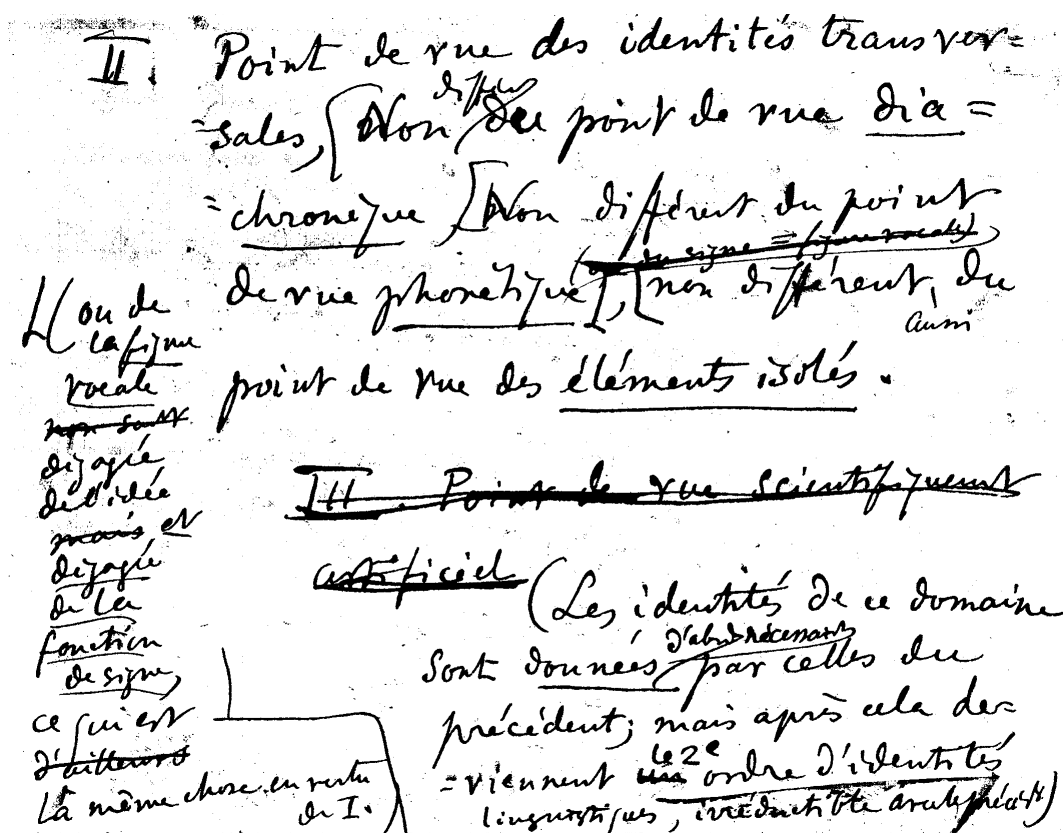 II. Point de vue des identités transver=
=sales, [Non différ du point de vue dia=
=chronique, [Non différent du point
(du signe = figure vocale)
de vue phonétique], [non différent, du
aussi
point de vue des éléments isolés.
(ou de
la figure
vocale
non sont
dégagée
de l'idée
mais et
dégagée
de la
fonction
de signe,
ce qui est
d'ailleurs
la même chose en vertu
de I.)
III. Point de vue scientifiquement
artificiel (Les identités de ce domaine
d'abord nécessairt
sont données par celles du
précédent; mais après cela de=
=viennent un le 2e ordre d'identités
linguistiques, irréductible avec le précédt)